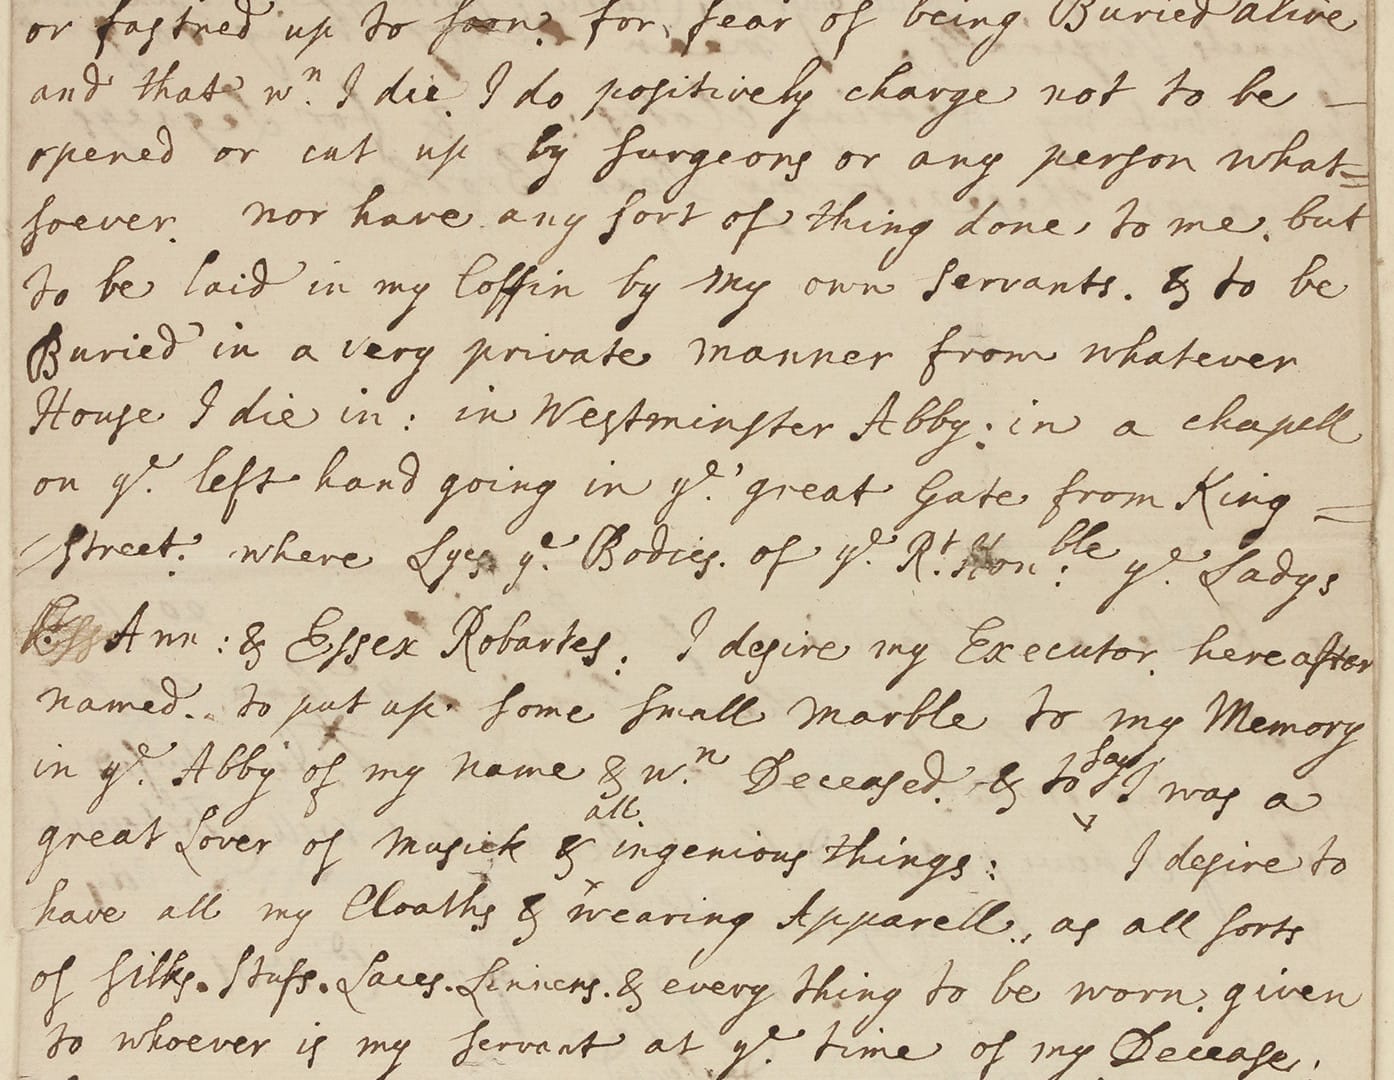 or fastned up to soon. for, fear of being Buried alive
and that wn. I die. I do positively charge not to be —
opened or cut up by surgeons or any person what=
soever. nor have any sort of thing done, to me. but
to be laid in my Coffin by my own servants. & to be
Buried in a very private manner from whatever
House I die in: in Westminster Abby: in a chapell
on ye. left hand going in ye. great Gate from King =
street. where Lys ye. Bodies. of ye. Rt. Honble: ye. Ladys
Ann: & Essex Robartes: I desire my Executor. hereafter
named. to put up some small marble to my Memory
in ye. Abby of my name & wn. Deceased. & to say I was a
great Lover of Musick & all ingenious things: I desire to
have all my Cloaths & wearing Apparell, as all sorts
of silks. stufs. Laces. Linnens. & every thing to be worn, given
to whoever is my servant at ye. time of my Decease,